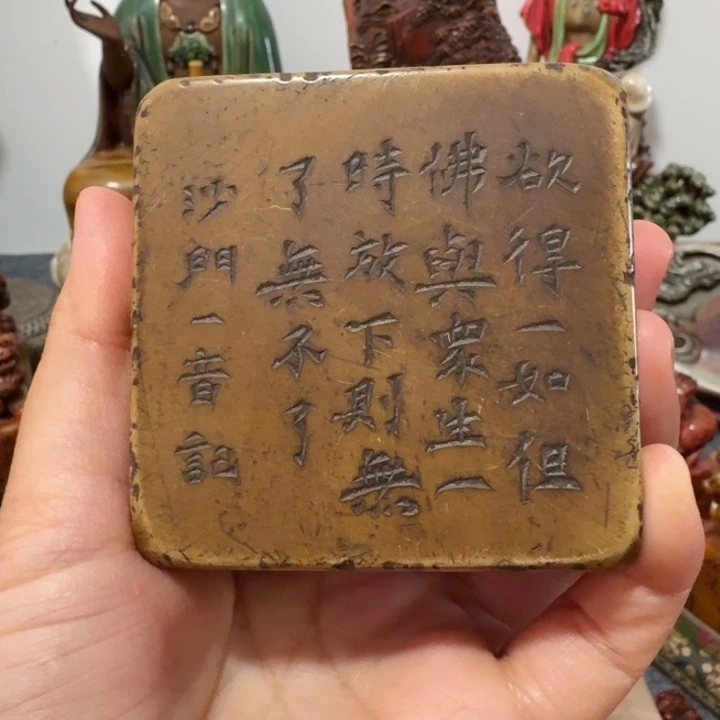 欲得一如但
佛與眾生一
時放下則無
了無不了
沙門一音記